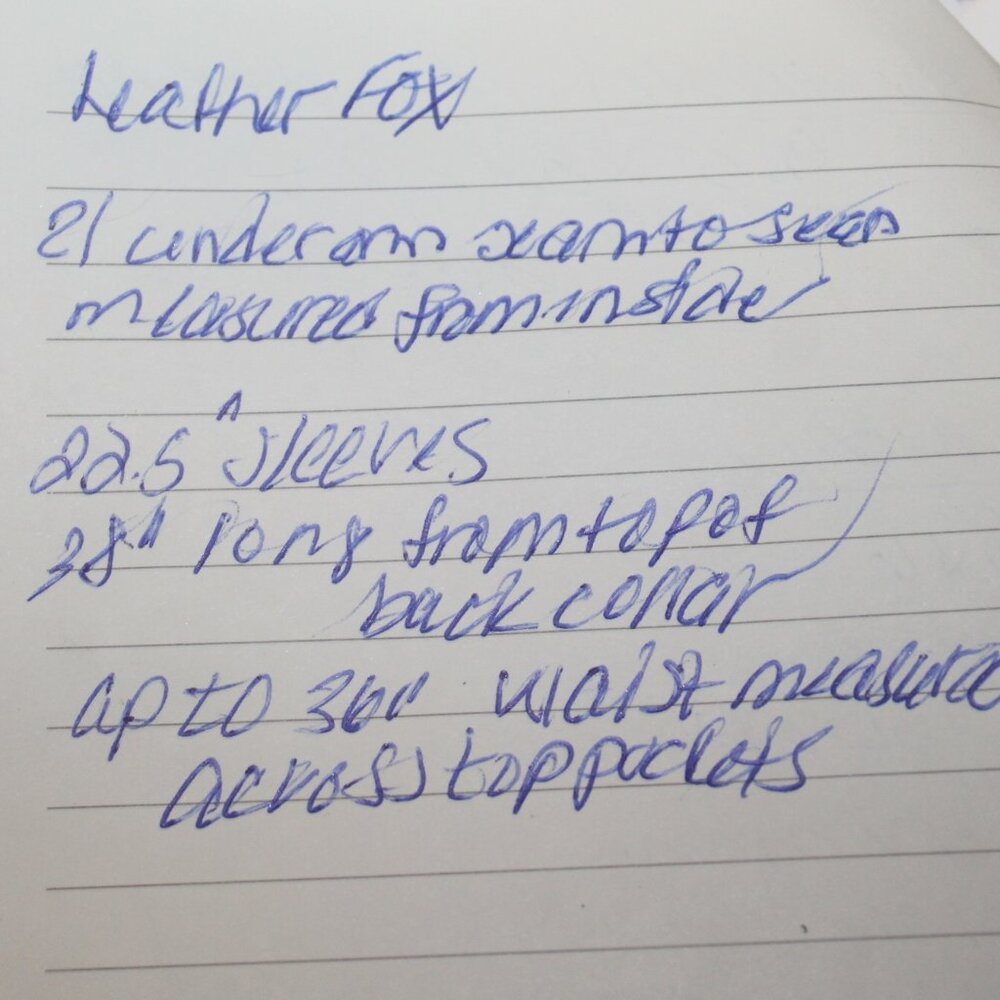 Leather Fox
21 underarm seam to seam
measured from inside
22.5" sleeves
38" long from top of
back collar
up to 36" waist measure
across top pockets